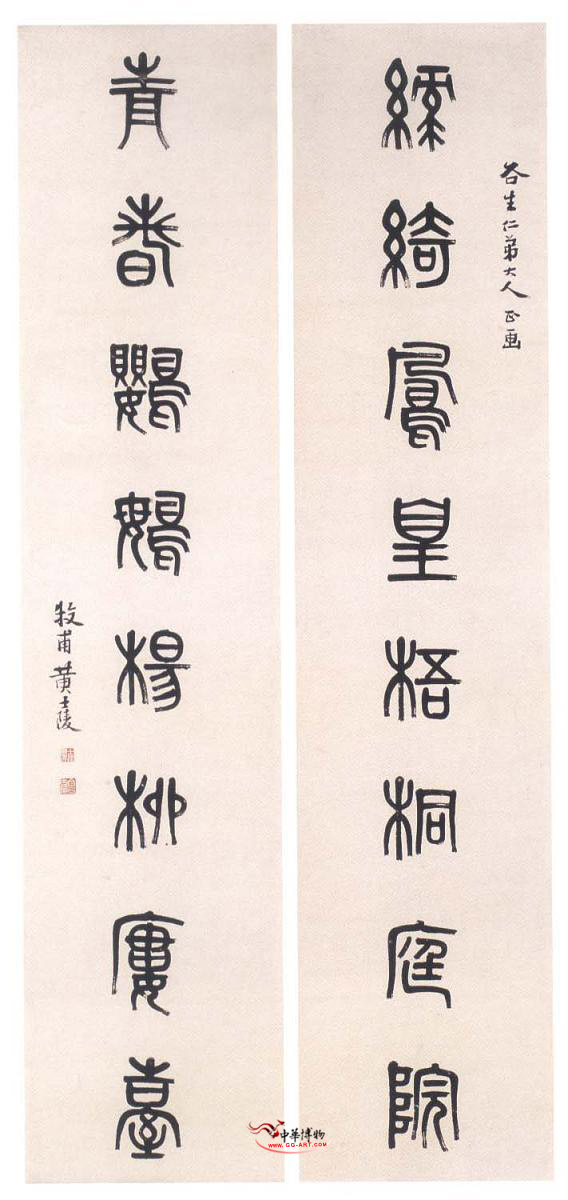 谷生仁弟大人正画
繻綺鳳皇梧桐庭院
青春鸚䳇楊柳廔臺
牧甫黃士陵
中華博物
WWW.GG-ART.COM